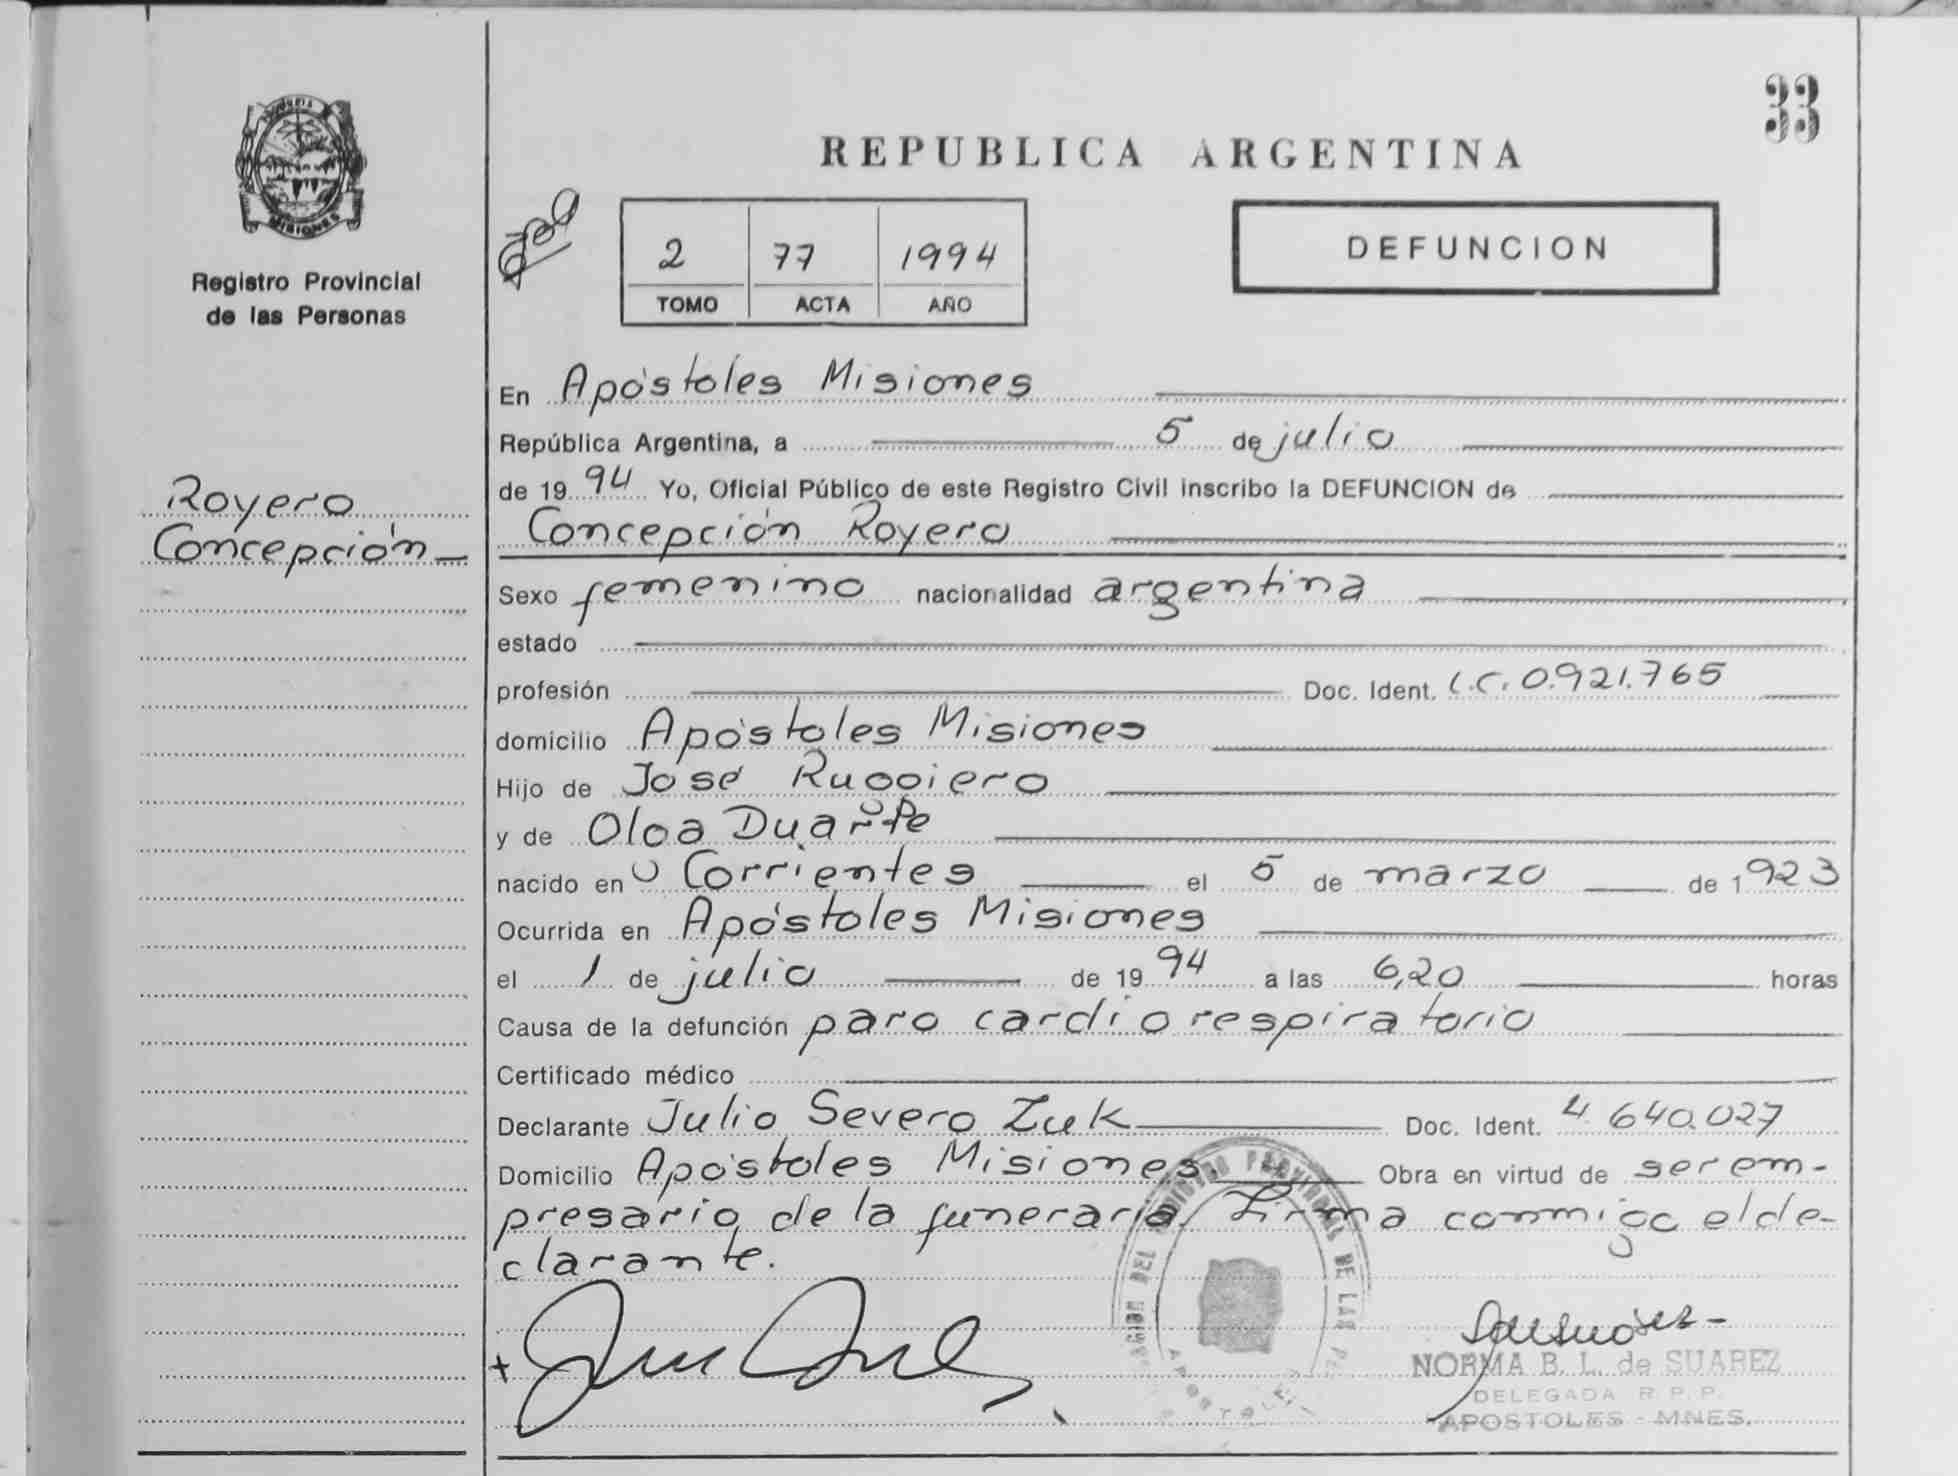 33
REPUBLICA ARGENTINA
MISIONES
Registro Provincial
de las Personas
2 77 1994
TOMO ACTA AÑO
DEFUNCION
Royero
Concepción
En Apóstoles Misiones
República Argentina, a 5 de julio
de 1994 Yo, Oficial Público de este Registro Civil inscribo la DEFUNCION de
Concepción Royero
Sexo femenino nacionalidad argentina
estado
profesión Doc. Ident. L.C. 0.921.765
domicilio Apóstoles Misiones
Hijo de José Ruggiero
y de Olga Duarte
nacido en Corrientes el 5 de marzo de 1923
Ocurrida en Apóstoles Misiones
el 1 de julio de 1994 a las 6,20 horas
Causa de la defunción paro cardiorespiratorio
Certificado médico
Declarante Julio Severo Zuk Doc. Ident. 4.640.027
Domicilio Apóstoles Misiones Obra en virtud de ser em-
presario de la funeraria. Firma conmigo el de-
clarante.
NORMA B. L. de SUAREZ
DELEGADA R. P. P.
APOSTOLES - MNES.